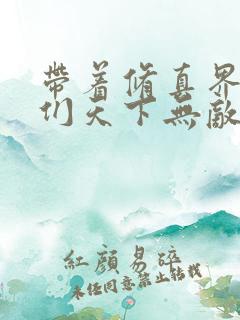 帶着修真界
们天下無敵
紅顔易碎
未经同意禁止转载